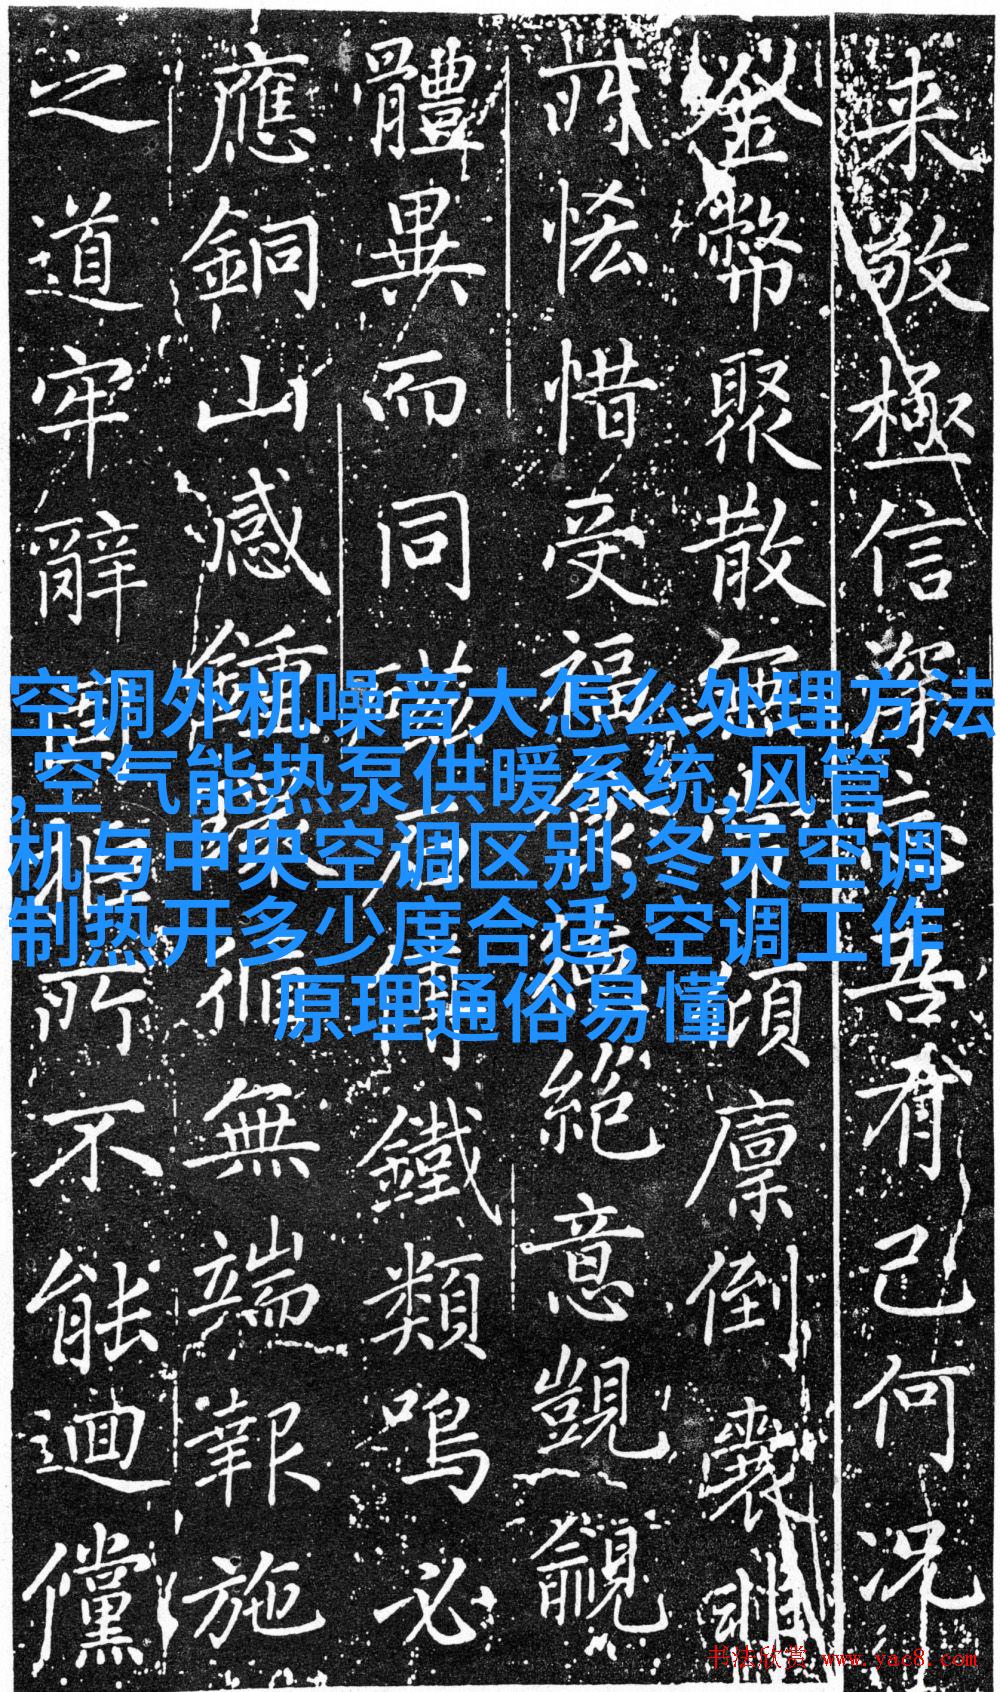 空调外机噪音大怎么处理方法
,空气能热泵供暖系统,风管
机与中央空调区别,冬天空调
制热开多少度合适,空调工作
原理通俗易懂
来敬極信窮忘吾有己何况
幣聚散無須廩倒裳
惜受福絶意覬覦
體異而同鐵類鳴必
應銅山感鍾無端報施
之道牢辭所不能迪儻
书法欣赏 www.yac8.com